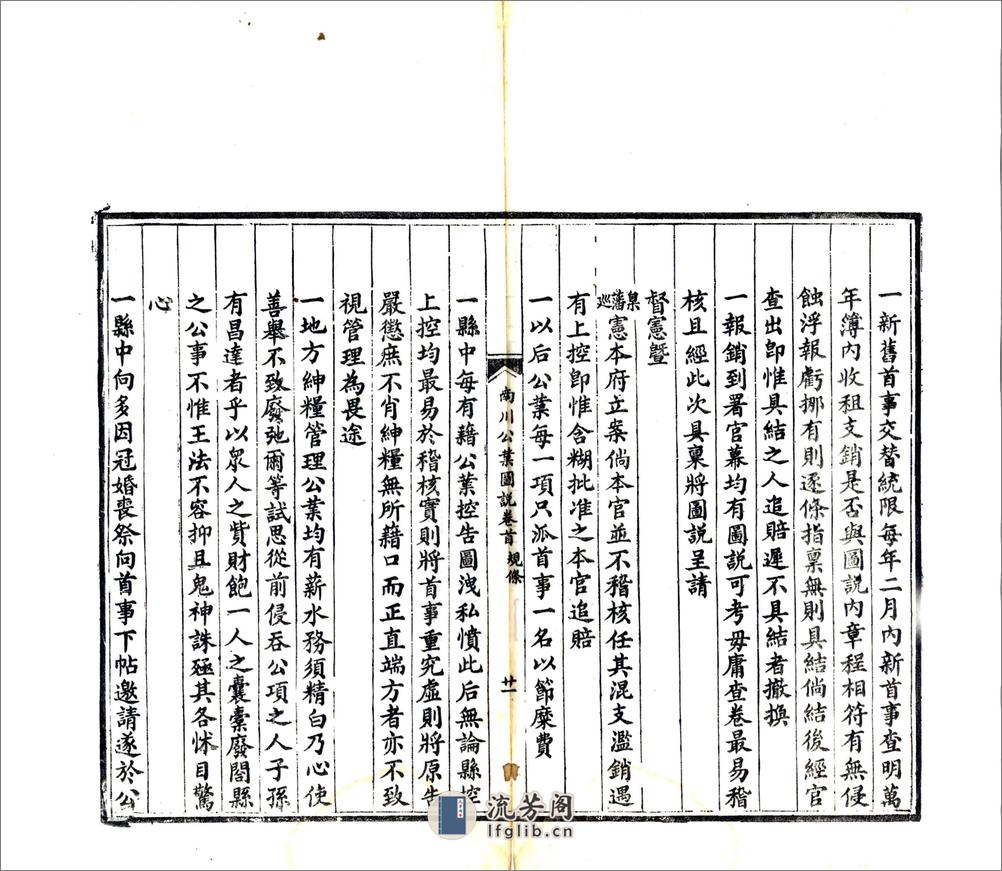 一新舊首事交替統限每年二月內新首事查明萬
年簿內收租支銷是否與圖說內章程相符有無侵
蝕浮報虧挪有則逐條指稟無則具結倘結後經官
查出卽惟具結之人追賠遲不具結者撤換
一報銷到署官幕均有圖說可考毋庸查卷最易稽
核且經此次具稟將圖說呈請
督憲曁
藩臬巡憲本府立案倘本官並不稽核任其混支濫銷遇
有上控卽惟含糊批准之本官追賠
一以后公業每一項只派首事一名以節糜費
南川公業圖說卷首 規條 廿一
一縣中每有藉公業控告圖洩私憤此后無論縣控
上控均最易於稽核實則將首事重究虛則將原告
嚴懲庶不肖紳糧無所藉口而正直端方者亦不致
視管理為畏途
一地方紳糧管理公業均有薪水務須精白乃心使
善舉不致廢弛爾等試思從前侵吞公項之人子孫
有昌達者乎以眾人之貲財飽一人之囊橐廢闔縣
之公事不惟王法不容抑且鬼神誅殛其各怵目驚
心
一縣中向多因冠婚喪祭向首事下帖邀請遂於公
流芳阁
lfglib.cn